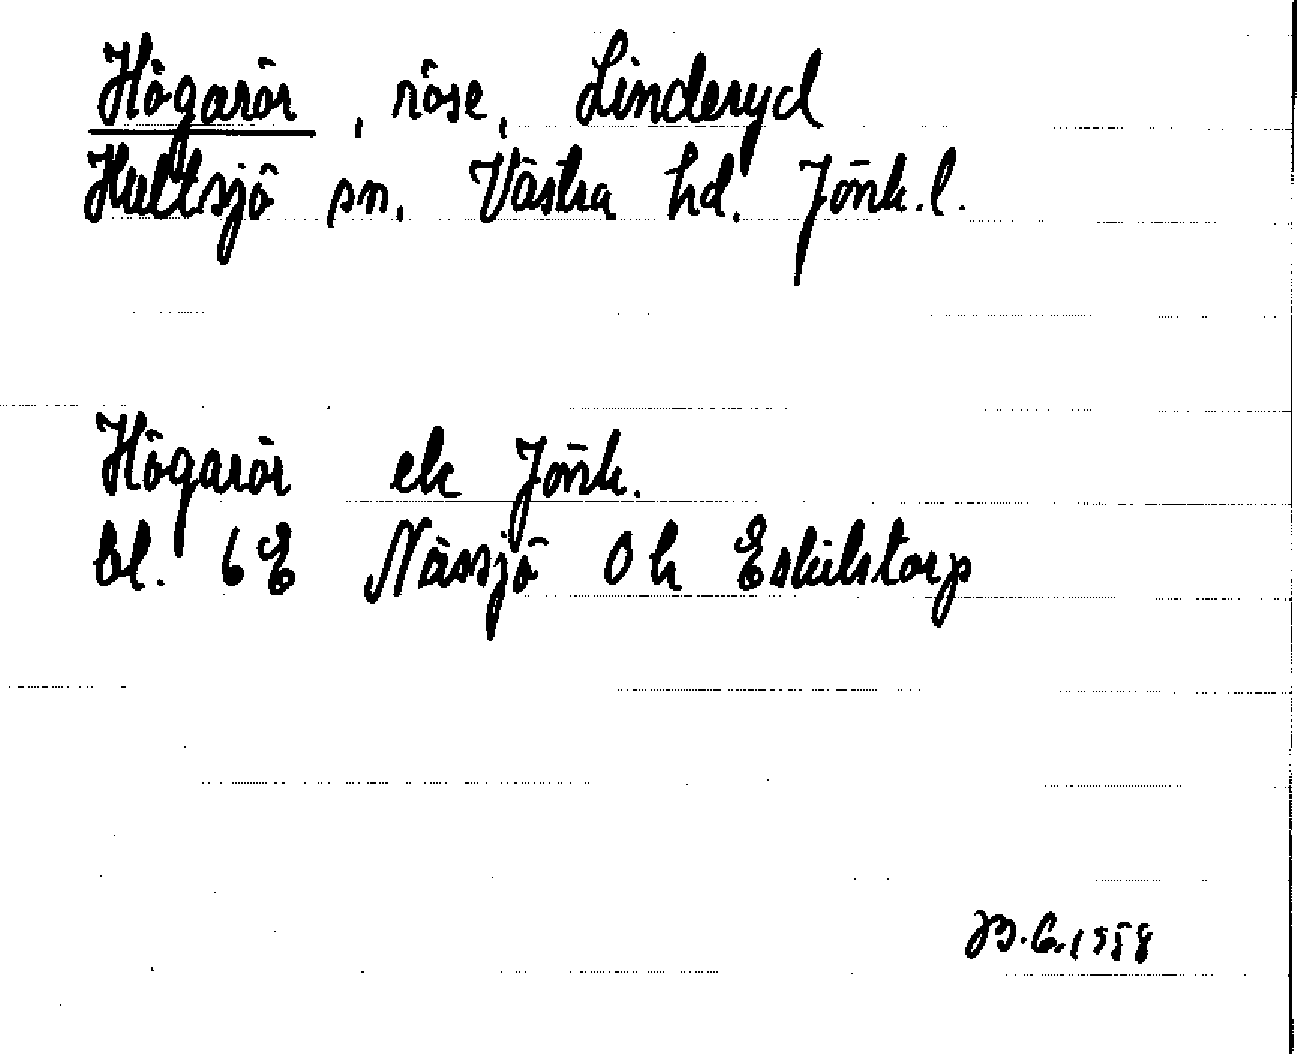 Högarör, röse, Linderyd
Hultsjö sn. Västra hd. Jönk.l.
Högarör ek Jönk.
bl. 6E Nässjö 0h Eskilstorp
B.C. 1958